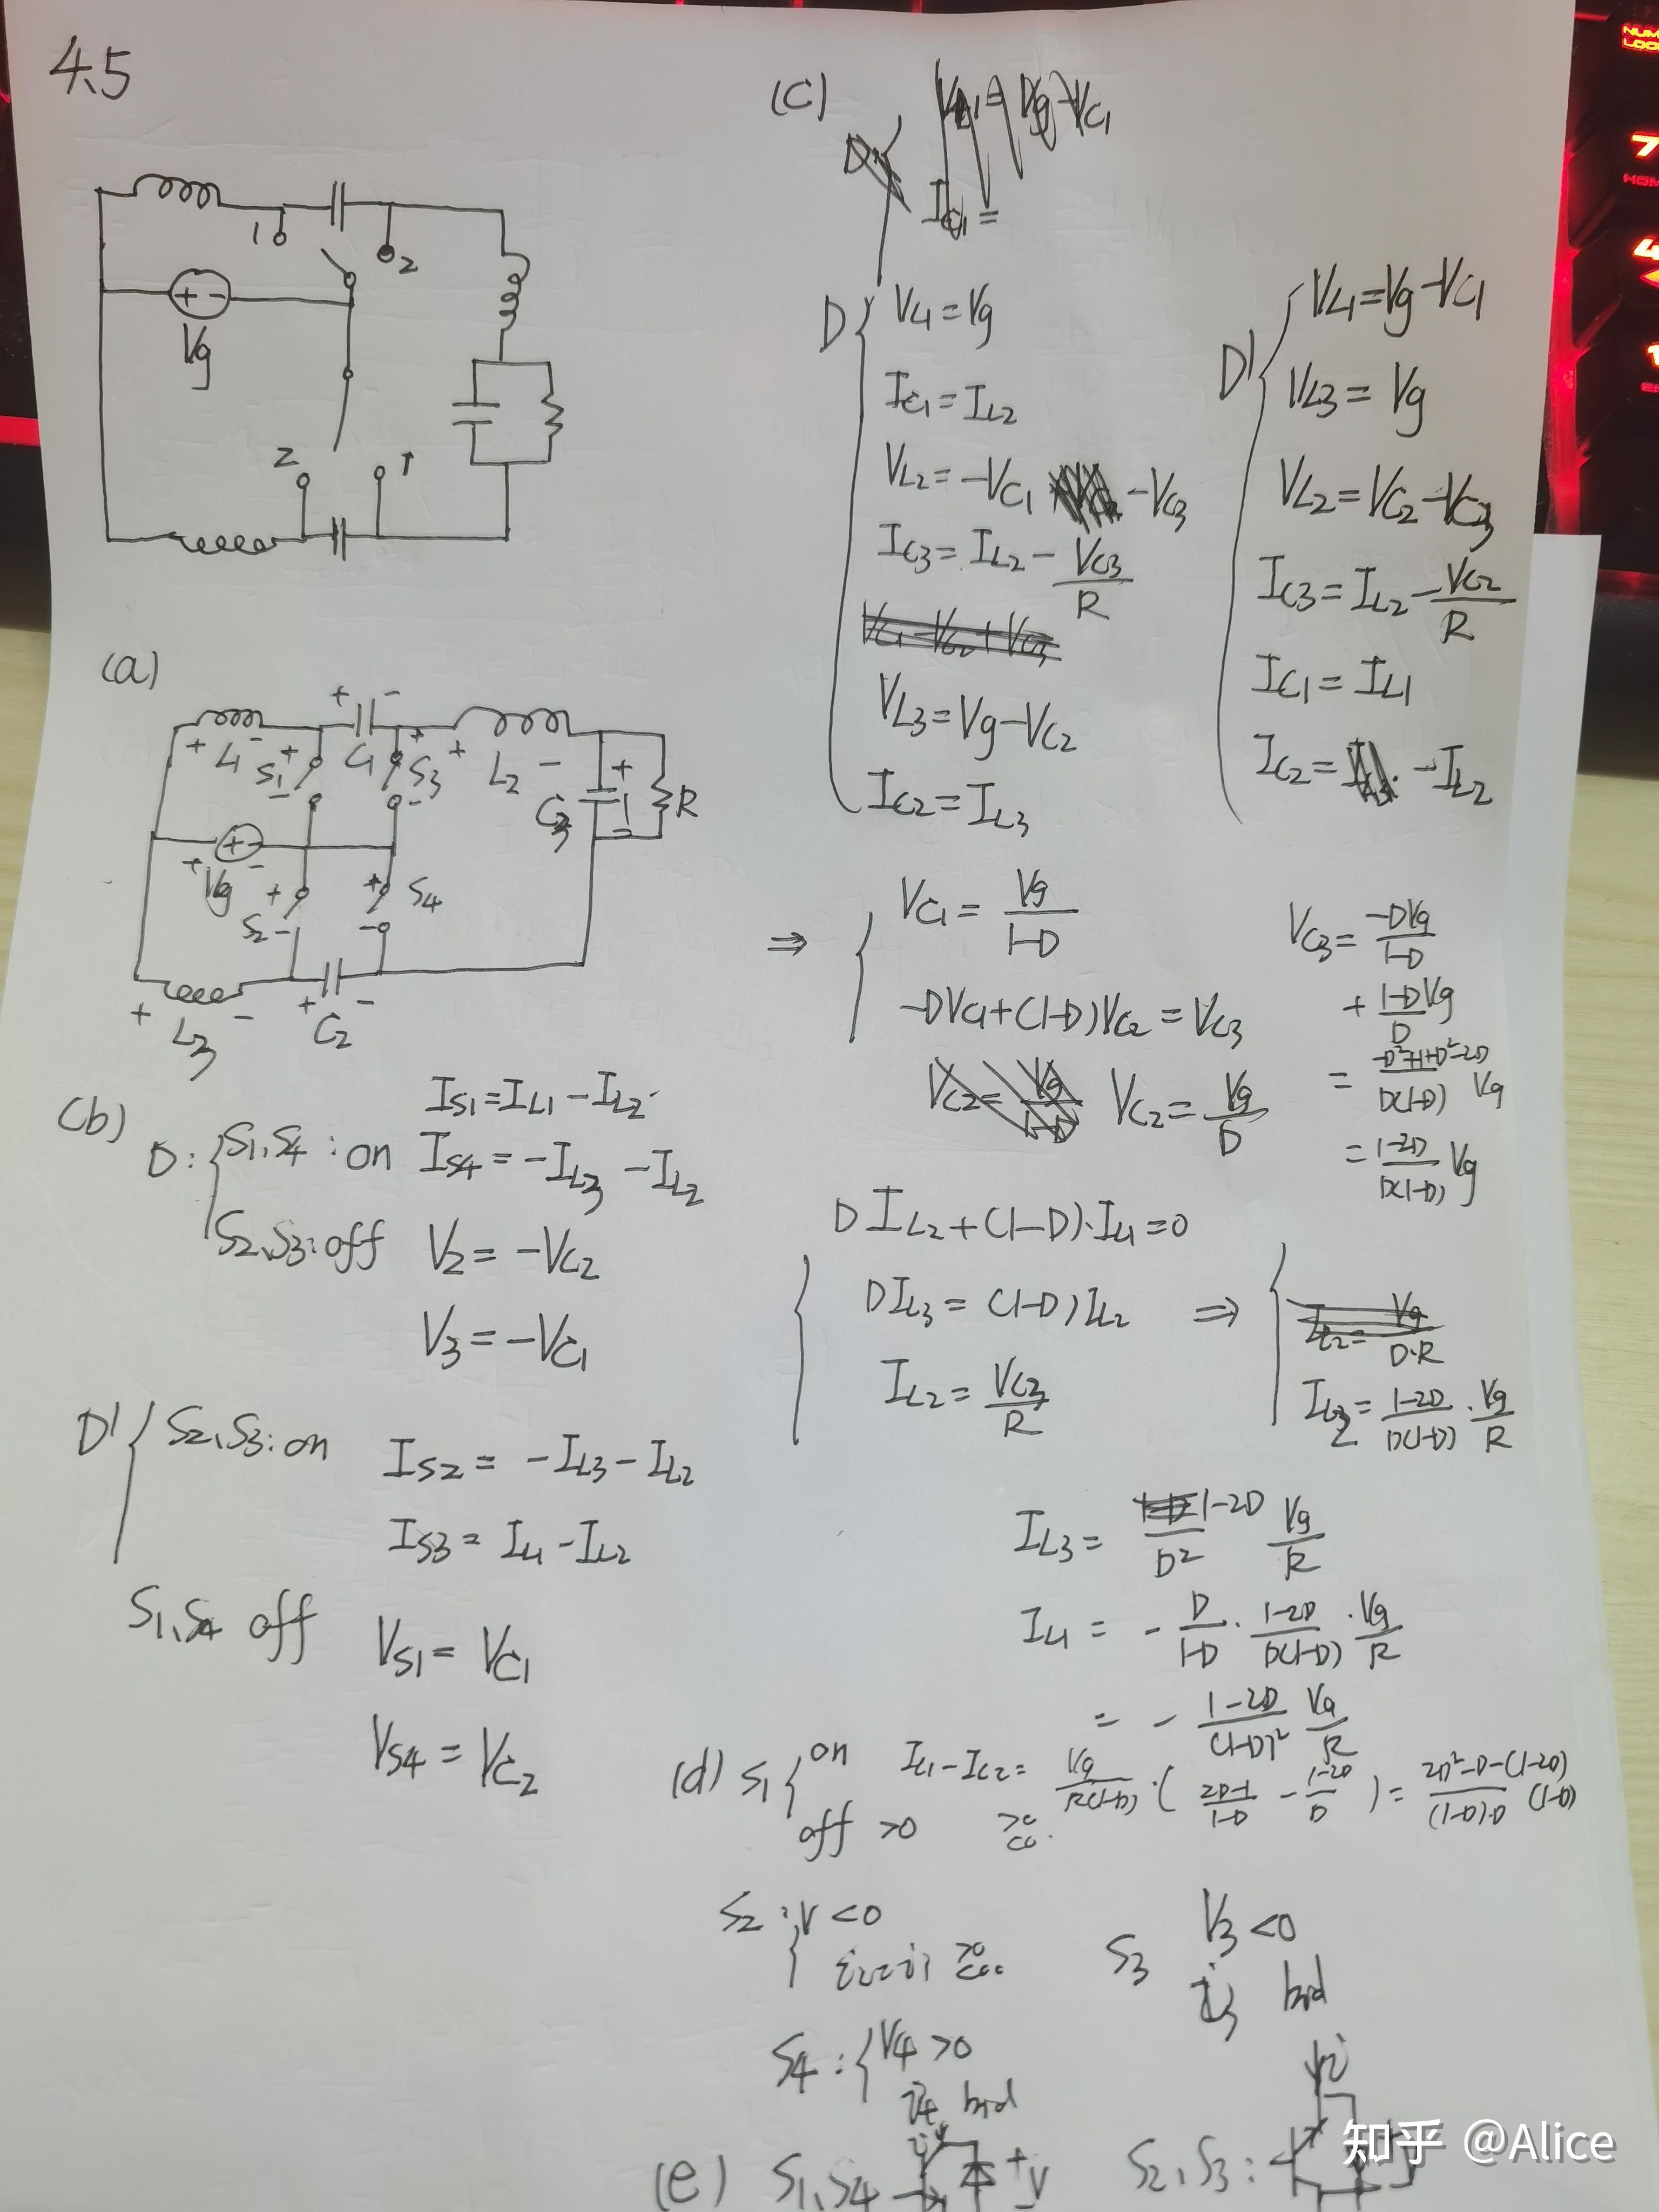 4.5
1
2
+ -
Vg
2
1
(a)
+ -
+ L1 - + S1 - C1 + S3 - + L2 - + C3 - R
+ Vg - + S2 - + S4 -
+ L3 - + C2 -
(b)
D: S1, S4 : on
IS1 = IL1 - IL2
IS4 = -IL3 - IL2
S2, S3: off
V2 = -VC2
V3 = -VC1
D' S2, S3: on
IS2 = -IL3 - IL2
IS3 = IL1 - IL2
S1, S4 off
VS1 = VC1
VS4 = VC2
(c)
D { VL1 = Vg
IC1 = IL2
VL2 = -VC1 - VC3
IC3 = IL2 - VC3/R
VL3 = Vg - VC2
IC2 = IL3
D' { VL1 = Vg - VC1
VL3 = Vg
VL2 = VC2 - VC3
IC3 = IL2 - VC2/R
IC1 = IL1
IC2 = -IL2
⇒ { VC1 = Vg/(1-D)
-DVC1 + (1-D)VC2 = VC3
VC2 = Vg/D
VC3 = -DVg/(1-D)
+ 1-D/D Vg
= -D²+1+D²-2D/D(1-D) Vg
= 1-2D/D(1-D) Vg
DIL2 + (1-D)·IL1 = 0
DIL3 = (1-D)IL2
IL2 = VC3/R
⇒ { IL2 = 1-2D/D(1-D) · Vg/R
IL3 = 1-2D/D² Vg/R
IL1 = - D/1-D · 1-2D/D(1-D) · Vg/R
= - 1-2D/(1-D)² Vg/R
(d) S1 { on IL1 - IL2 = Vg/R(1-D) · ( 2D-1/1-D - 1-2D/D ) = 2D²-D-(1-2D)(1-D)/(1-D)·D
off >0 >0 <0.
S2 : V <0
S3 V3 <0
i3 bid
S4 : { V4 >0
i4 bid
(e) S1, S4
i
+
V
-
S2, S3:
i
知乎 @Alice